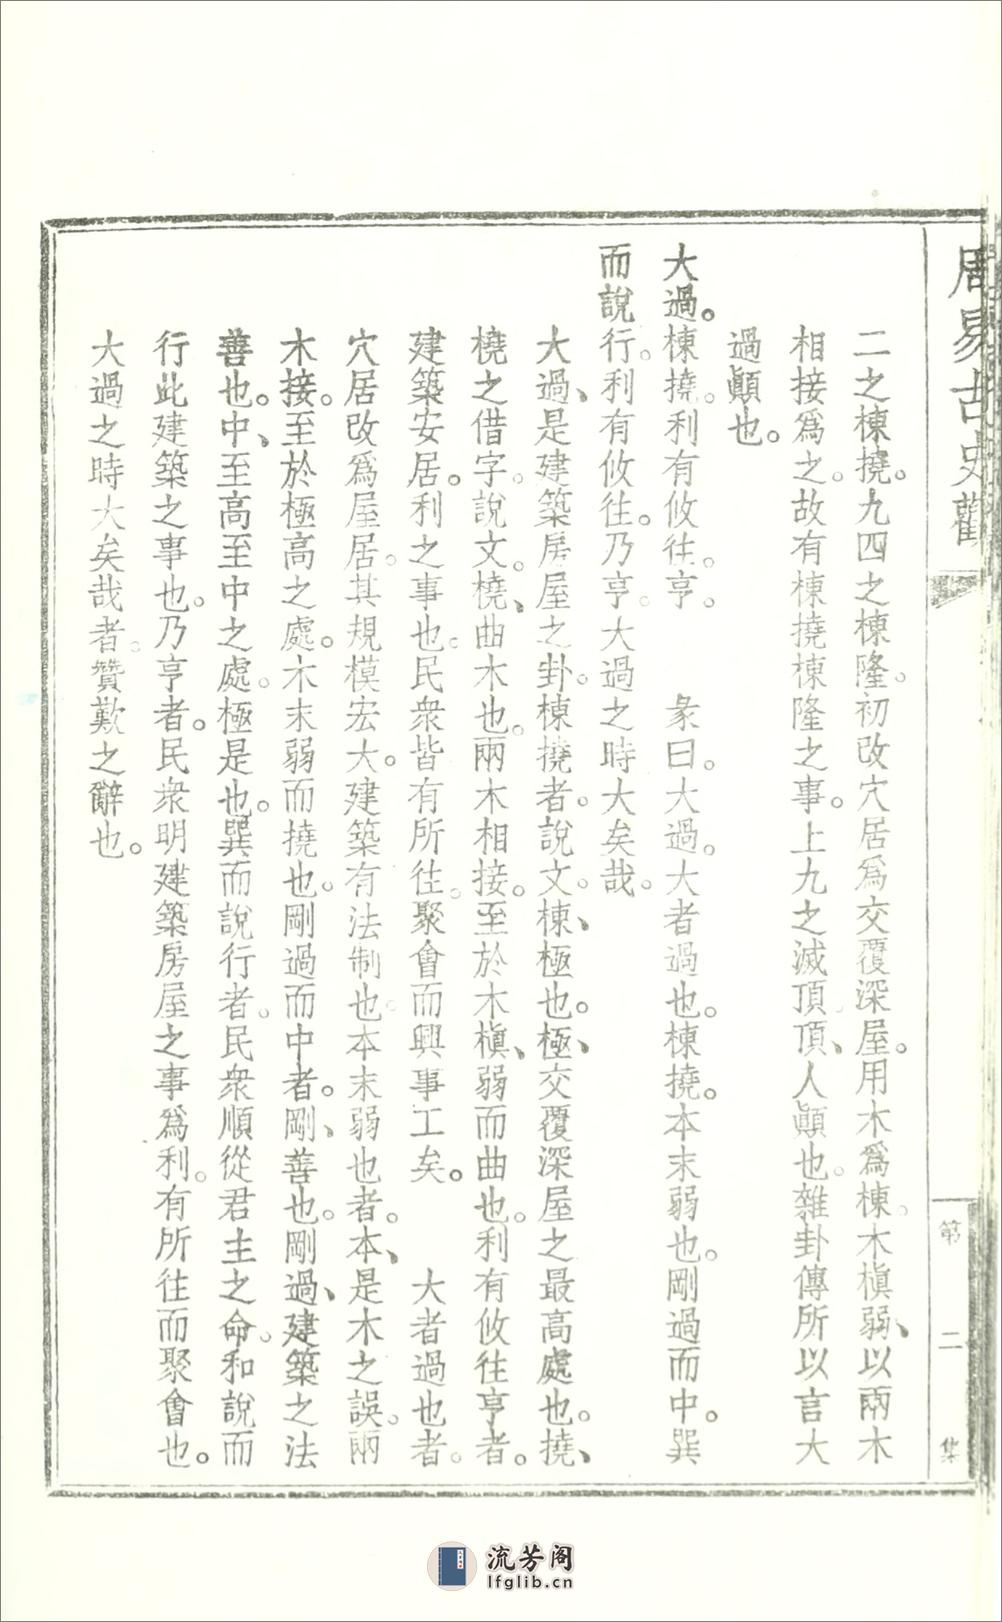 周易古史觀
第二集
二之棟撓。九四之棟隆。初改穴居爲交覆深屋。用木爲棟。木槇弱、以兩木
相接爲之。故有棟撓棟隆之事。上九之滅頂、頂、人顚也。雜卦傳所以言大
過顚也。
大過。棟撓。利有攸往。亨。　彖曰。大過。大者過也。棟撓。本末弱也。剛過而中。巽
而說行。利有攸往。乃亨。大過之時大矣哉。
大過、是建築房屋之卦。棟撓者。說文、棟、極也。極、交覆深屋之最高處也。撓、
橈之借字。說文。橈、曲木也。兩木相接。至於木槇、弱而曲也。利有攸往亨者。
建築安居。利之事也。民衆皆有所往。聚會而興事工矣。　大者過也者。
穴居改爲屋居。其規模宏大。建築有法制也。本末弱也者。本、是木之誤。兩
木接。至於極高之處。木末弱而撓也。剛過而中者。剛、善也。剛過、建築之法
善也。中、至高至中之處。極是也。巽而說行者。民衆順從君主之命。和說而
行此建築之事也。乃亨者。民衆明建築房屋之事爲利。有所往而聚會也。
大過之時大矣哉者。贊歎之辭也。
流芳阁
lfglib.cn